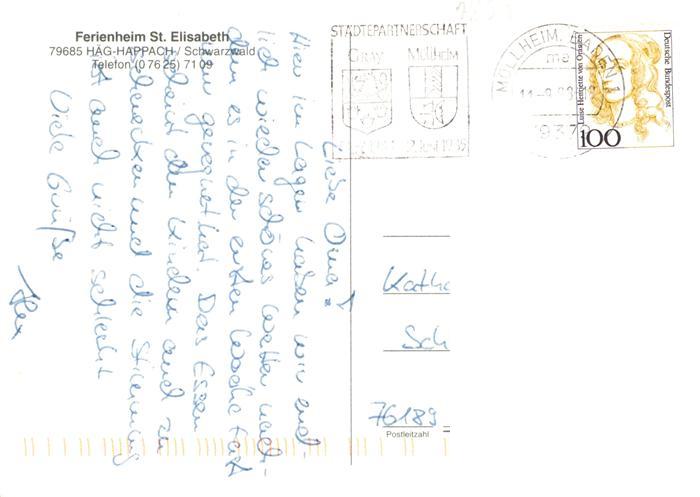 Ferienheim St. Elisabeth
79685 HÄG-HAPPACH / Schwarzwald
Telefon (0 76 25) 71 09
Liebe Oma!
Hier im Lager haben wir end-
lich wieder schönes Wetter nach-
dem es in der ersten Woche fast
geregnet hat. Das Essen
scheint den Kindern auch zu
schmecken und die Stimmung
ist auch nicht schlecht
Viele Grüße
Alex
STÄDTEPARTNERSCHAFT
GRAY Müllheim
MÜLLHEIM, BADEN 1
mc
Luise Henriette von Oranien
Deutsche Bundespost
100
Kath
Sch
76189
Postleitzahl